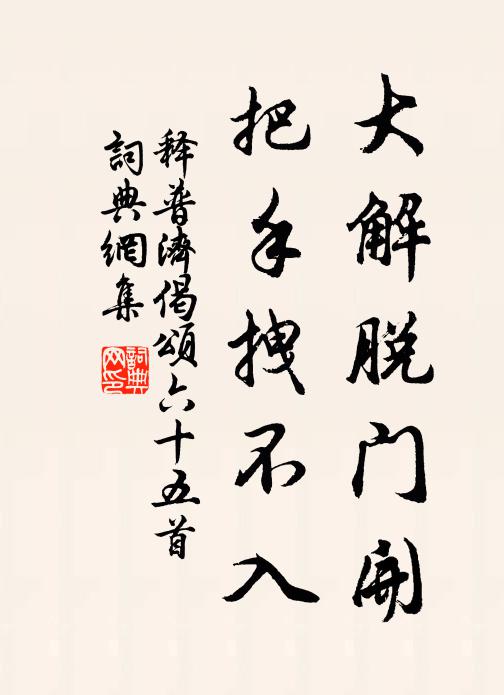 大解脱门开
把手拽不入
释普濟偈頌六十五首
詞典網集
詞典網印